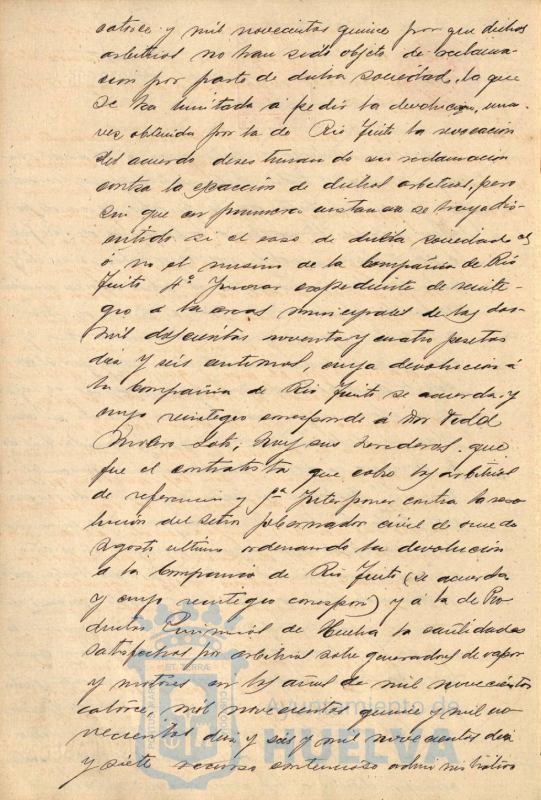 catorce y mil novecientos quince por que dichos
arbitrios no han sido objeto de reclama-
cion por parte de dicha sociedad, la que
se ha limitado a pedir la devolucion, una
vez obtenida por la de Rio Tinto la revocación
del acuerdo desestimando su reclamacion
contra la exacción de dichos arbitrios, pero
sin que en primera instancia se haya dis-
cutido si el caso de dicha sociedad es
ó no el mismo de la Compañia de Rio
Tinto 4º Incoar expediente de reinte-
gro a las arcas municipales de las dos-
mil doscientas noventa y cuatro pesetas
diez y seis centimos, cuya devolucion á
la Compañia de Rio Tinto se acuerda y
cuyo reintegro corresponde á Don
hoy sus herederos, que
fue el contratista que cobro los arbitrios
de referencia y pª Interponer contra la reso-
lucion del Señor Gobernador civil de once de
Agosto ultimo ordenando la devolución
a la Compania de Rio Tinto (se acuerda
y cuyo reintegro ) y á la de Pro-
ductos de Huelva las cantidades
satisfechas por arbitrios sobre generadores de vapor
y motores en los años de mil novecientos
catorce, mil novecientos quince y mil no-
vecientos diez y seis y mil novecientos diez
y siete recurso contencioso administrativo
PORTUS MARIS ET TERRAE CUSTODIA
Ayuntamiento de
HUELVA